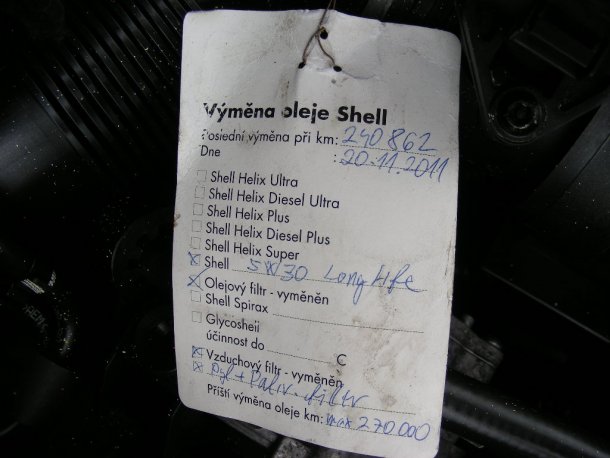 Výměna oleje Shell
Poslední výměna při km: 240 862
Dne : 20.11.2011
Shell Helix Ultra
Shell Helix Diesel Ultra
Shell Helix Plus
Shell Helix Diesel Plus
Shell Helix Super
Shell 5W/30 Long life
Olejový filtr - vyměněn
Shell Spirax
Glycoshell
účinnost do C
Vzduchový filtr - vyměněn
Pyl + Paliv. filtr
Příští výměna oleje km: max 270.000